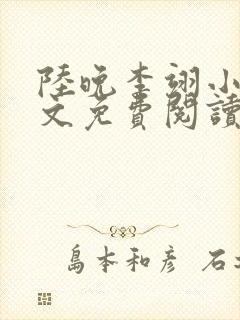 陸晚李翊小
文免費閱讀
島本和彥 石